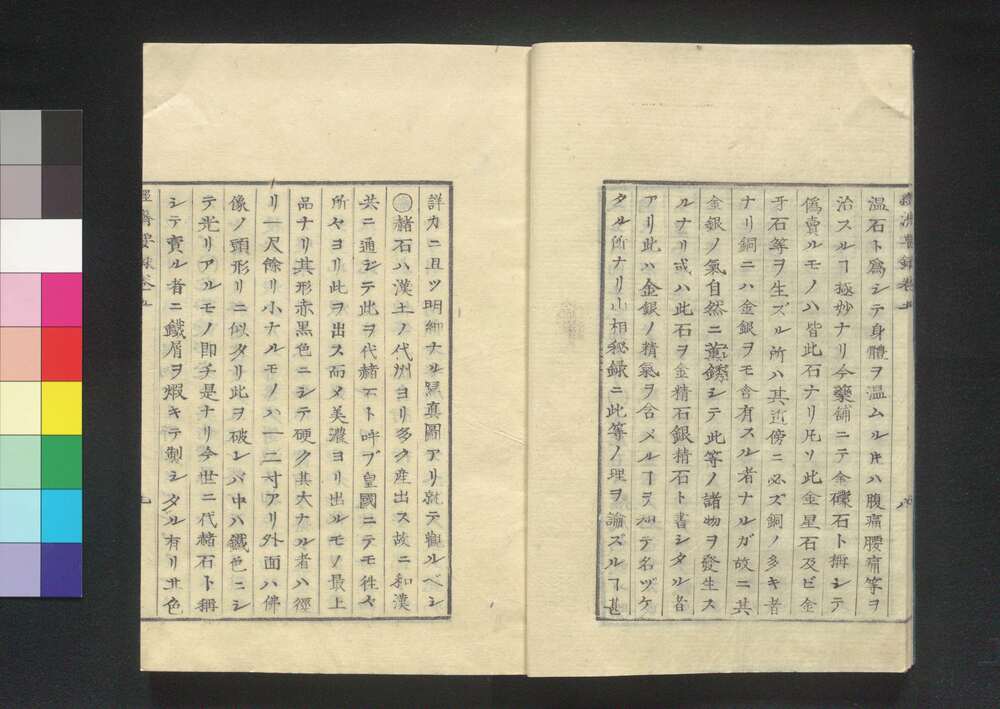 温石ト爲シテ身體ヲ温ムル片ハ腹痛腰痛等ヲ
治スルヿ極妙ナリ今藥舗ニテ金礞石ト稱シテ
僞賣ルモノハ皆此石ナリ凡ソ此金星石及ビ金
牙石等ヲ生ズル所ハ其近傍ニ必ズ銅ノ多キ者
ナリ銅ニハ金銀ヲモ含有スル者ナルガ故ニ其
金銀ノ氣自然ニ薫蒸シテ此等ノ諸物ヲ發生ス
ルナリ或ハ此石ヲ金精石銀精石ト書シタル者
アリ此ハ金銀ノ精氣ヲ含メルヿヲ知テ名ヅケ
タル所ナリ山相秘録ニ此等ノ理ヲ論ズルヿ甚
詳カニ且ツ明細ナル冩真圖アリ就テ觀ルベシ
○赭石ハ漢土ノ代洲ヨリ多ク産出ス故ニ和漢
共ニ通シテ此ヲ代赭石ト呼ブ皇國ニテモ徃々
所々ヨリ此ヲ出ス而メ美濃ヨリ出ルモノ最上
品ナリ其形赤黒色ニシテ硬ク其大ナル者ハ徑
リ一尺餘リ小ナルモノハ一二寸アリ外面ハ佛
像ノ頭形リニ似タリ此ヲ破レバ中ハ鐵色ニシ
テ光リアルモノ即チ是ナリ今世ニ代赭石ト稱
シテ賣ル者ニ鐵屑ヲ煆キテ製シタル有リ其色
經濟要録卷五
九